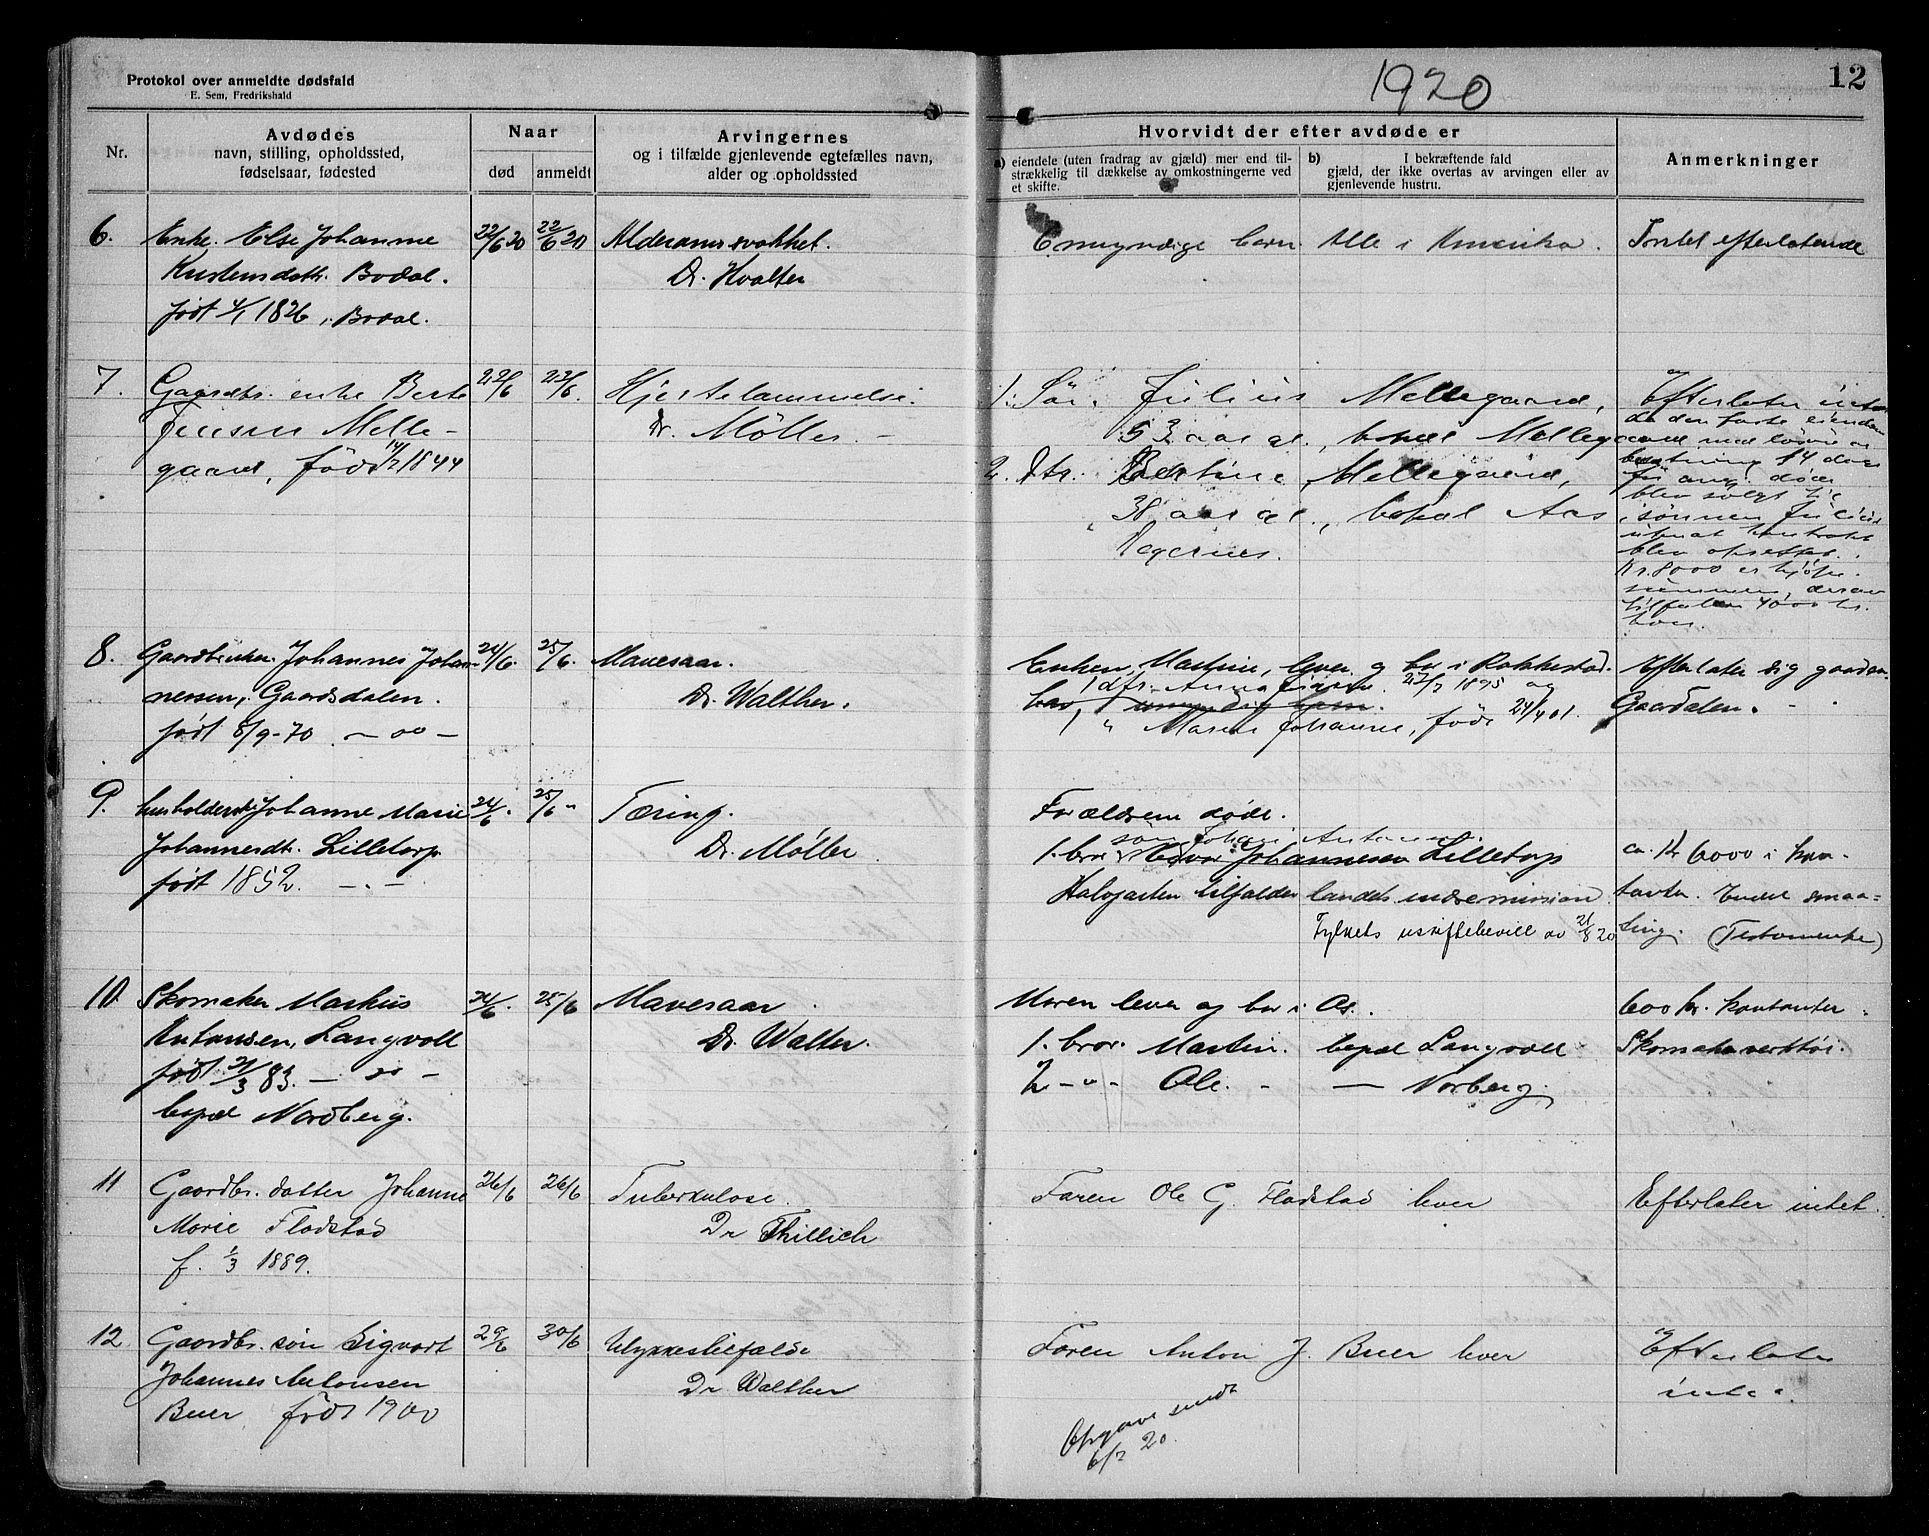 Protokol over anmeldte dødsfald
E. Sem, Fredrikshald
1920
12
Nr.
Avdødes
navn, stilling, opholdssted,
fødselsaar, fødested
Naar
død
anmeldt
Arvingernes
og i tilfælde gjenlevende egtefælles navn,
alder og opholdssted
Hvorvidt der efter avdøde er
a) eiendele (uten fradrag av gjæld) mer end til-
strækkelig til dækkelse av omkostningerne ved
et skifte.
b) I bekræftende fald
gjæld, der ikke overtas av arvingen eller av
gjenlevende hustru.
Anmerkninger
6. Enke. Else Johanne 22/6 20 22/6 20 Alderdomssvakhet. Umyndige barn. Alle i Amerika. Intet efterlatende
Kristensdatr. Bodal. Dr. Hvalter
født 4/1 1826 i Bodal.
7. Gaardbr. enke Berte 22/6 23/6. Hjertelammelse. 1. Sön Julius Mellegaard, Efterlater intet
Jensen Melle- Dr. Möller. - 53 aar gl., bopæl Mellegaard
gaard, född 14/7 1844 2. Dtr. Bertine Mellegaard,
38 aar gl., bopæl Aas
Degernes.
da den faste eiendom
med løsøre og
besætning 14 dage
før ang. døde
blev solgt til
sønnen Julius
uten at kontrakt
blev opsettet.
Kr. 8000 er kjøpe-
summen, derav
tilfalder 4000 kr.
8. Gaardbruker Johannes Johan- 24/6. 25/6. Mavesaar. Enken, Martine, lever og bor i Rakkestad. Efterlater sig gaarden
nessen, Gaardsdalen. Dr. Walther. 1 dtr. Anna 27/7 1895 og Gaardalen. -
født 8/9-70 - oo - 1 " Maren Johanne, född 24/4 01.
9. husholderske Johanne Marie 24/6. 25/6 - Tæring. Forældrene døde.
Johannesdtr. Lilletorp. Dr. Möller 1. bror Johannesen Lilletorp ca. kr 6000 i kon-
født 1852. - . - Halvparten tilfalder landets indremission. tanter. Endel smaa-
Fylkets uskiftebevill av 21/8 20 ting. (Testamente)
10. Skomaker Markus 24/6. 25/6 Mavesaar. Moren lever og bor i Os. 600 kr. kontanter.
Antonsen, Langvoll Dr. Walter. 1. bror. Martin. bopæl Langvoll Skomakerverktøi.
født 21/3 83. - oo - 2 - " - Ole. - — Norberg.
bopæl Nordberg.
11 Gaardbr. datter Johanne 26/6 26/6 Tuberkulose. Faren Ole G. Flodstad lever Efterlater intet.
Marie Flodstad Dr Thillich
f. 1/3 1889.
12. Gaardbr. søn Sigvart 29/6 30/6 Ulykkestilfælde Faren Anton J. Buer lever Efterlater
Johannes Antonsen Dr Walther intet.
Buer född 1900
Opgave sendt
6/7 20.